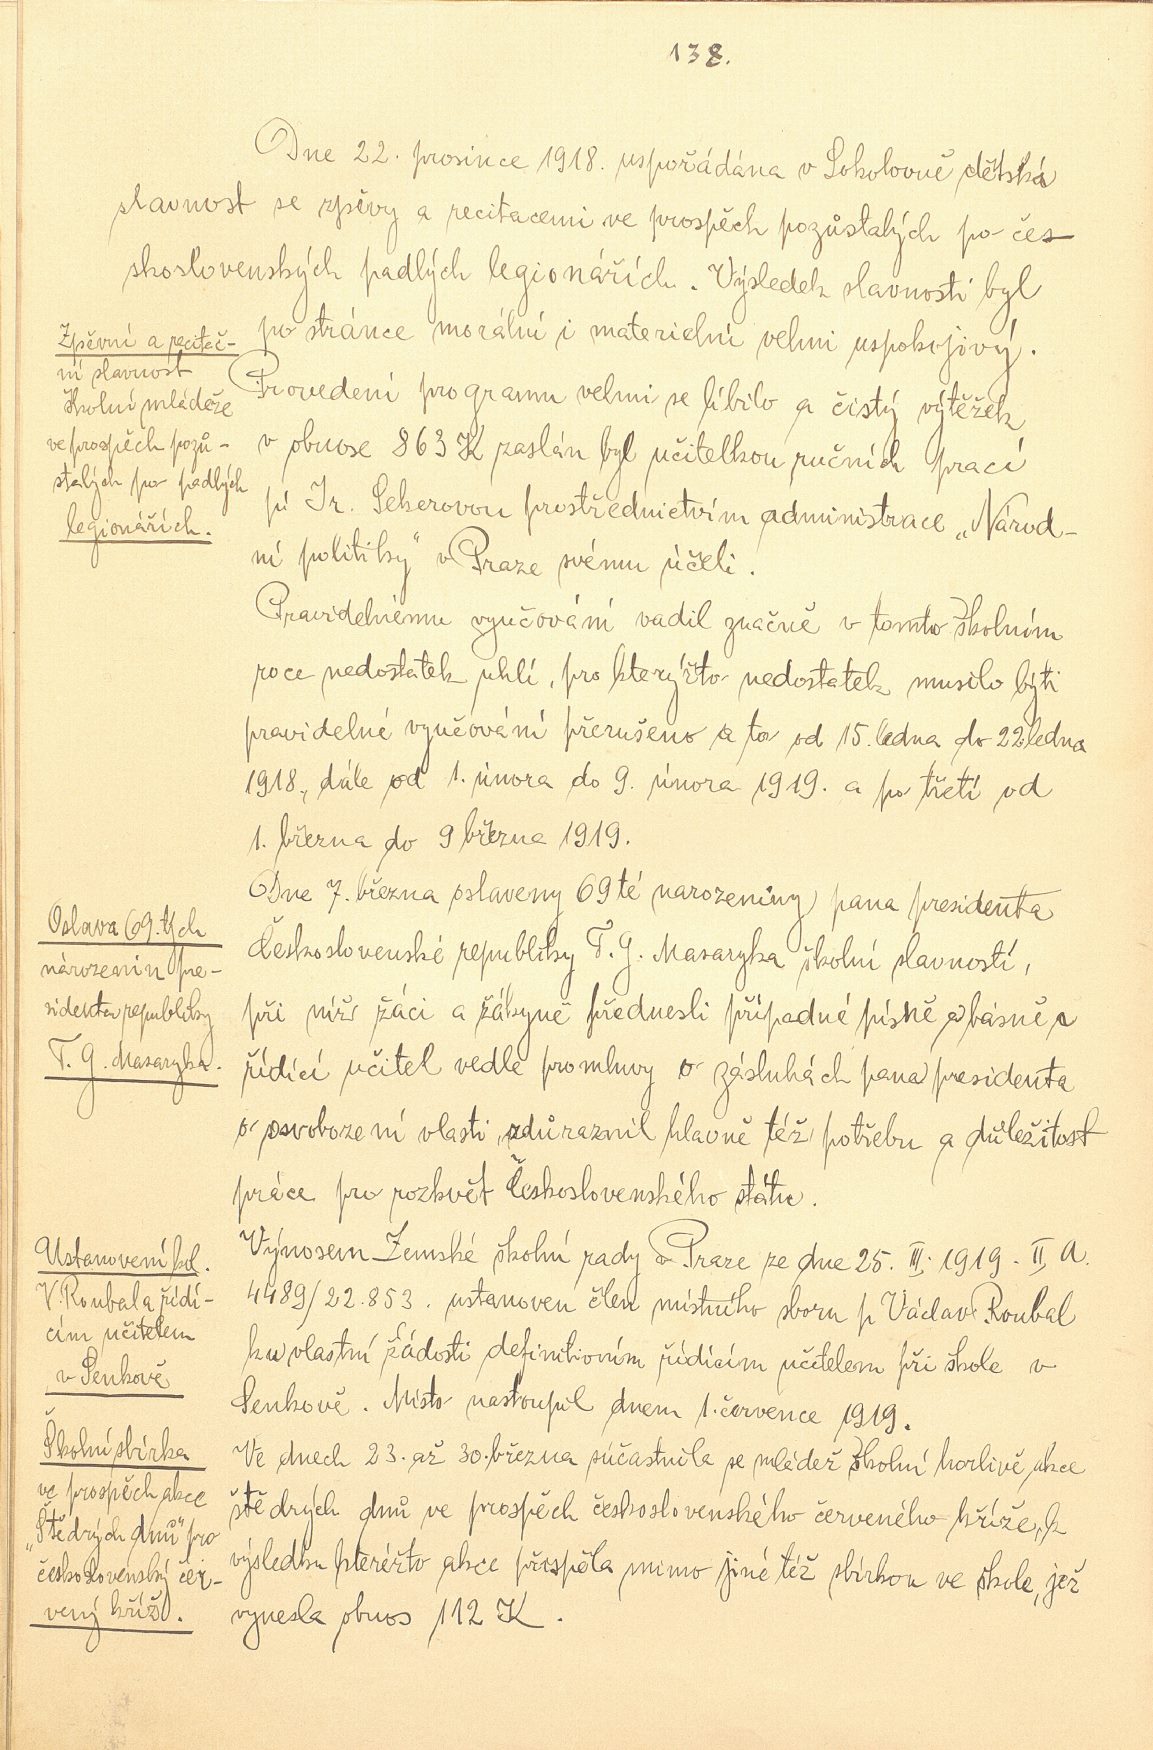 138.
Dne 22. prosince 1918. uspořádána v Sokolovně dětská
slavnost se zpěvy a recitacemi ve prospěch pozůstalých po čes-
skoslovenských padlých legionářích. Výsledek slavnosti byl
po stránce morální i materielní velmi uspokojivý.
Zpěvní a recitač-
ní slavnost
školní mládeže
ve prospěch pozů-
stalých po padlých
legionářích.
Provedení programu velmi se líbilo a čistý výtěžek
v obnose 863 K zaslán byl učitelkou ručních prací
pí Ir. Sekerovou prostřednictvím administrace „Národ-
ní politiky" v Praze svému účeli.
Pravidelnému vyučování vadil značně v tomto školním
roce nedostatek uhlí, pro kterýžto nedostatek musilo býti
pravidelné vyučování přerušeno a to od 15. ledna do 22 ledna
1918., dále od 1. února do 9. února 1919. a po třetí od
1. března do 9 března 1919.
Oslava 69. tých
národenin pre-
sidenta republiky
T. G. Masaryka.
Dne 7. března oslaveny 69 té narozeniny pana presidenta
Československé republiky T. G. Masaryka školní slavností,
při níž žáci a žákyně přednesli případné písně a básně a
řídící učitel vedle promluvy o zásluhách pana presidenta
o osvobození vlasti, zdůraznil hlavně též potřebu a důležitost
práce pro rozkvět Československého státu.
Ustanovení kol.
V. Roubala řídí-
cím učitelem
v Senkově
Výnosem Zemské školní rady v Praze ze dne 25. III. 1919. II A.
4489/22.853. ustanoven člen místního sboru p Václav Roubal
ku vlastní žádosti definitivním řídícím učitelem při škole v
Senkově. Místo nastoupil dnem 1. července 1919.
Školní sbírka
ve prospěch akce
„Štědrých dnů" pro
československý čer-
vený kříž.
Ve dnech 23. až 30. března súčastnila se mládež školní horlivě akce
štědrých dnů ve prospěch československého červeného kříže, k
výsledku kteréžto akce přispěla mimo jiné též sbírkou ve škole, jež
vynesla obnos 112 K.